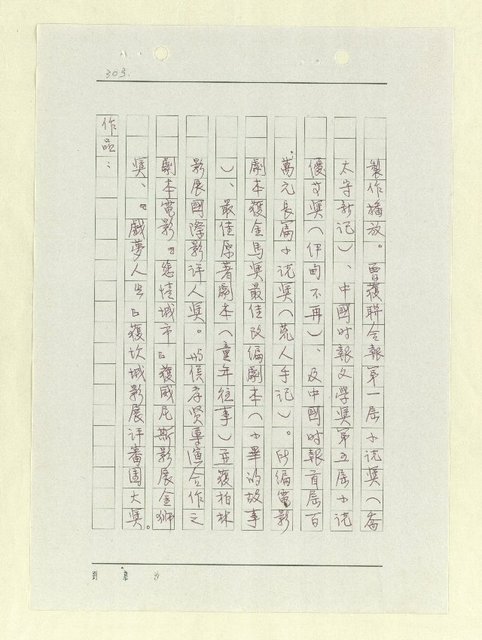 303
製作播放。曾獲聯合報第一屆小說獎(喬
太守新記)、中國时報文学獎第五屆小說
優等獎(伊甸不再)、及中國时報首屆百
萬元長篇小說獎(荒人手記)。所編電影
劇本獲金馬獎最佳改編劇本(小畢的故事
)、最佳原著劇本(童年往事)並獲柏林
影展國際影評人獎。與侯孝賢導演合作之
劇本電影『悲情城市』獲威尼斯影展金獅
獎、『戲夢人生』獲坎城影展評審團大獎。
作品: